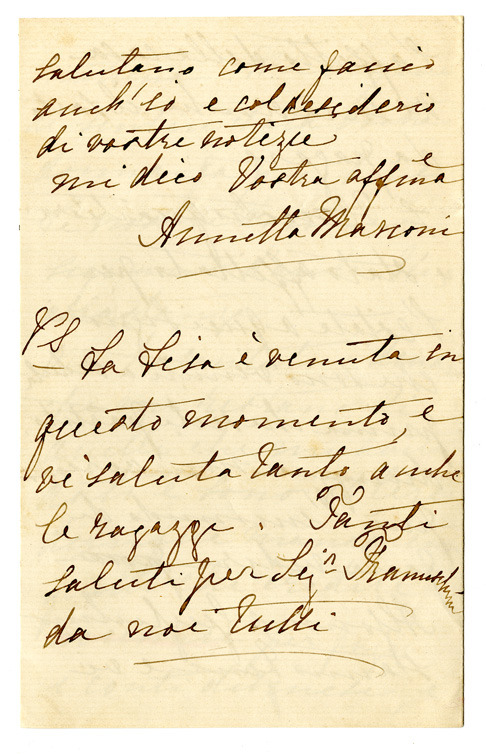 salutano come faccio
anch'io e col desiderio
di vostre notizie
mi dico Vostra affma
Annetta Marconi
PS La Lisa è venuta in
questo momento, e
vi saluta tanto anche
le ragazze. Tanti
saluti per Sign
da noi tutti